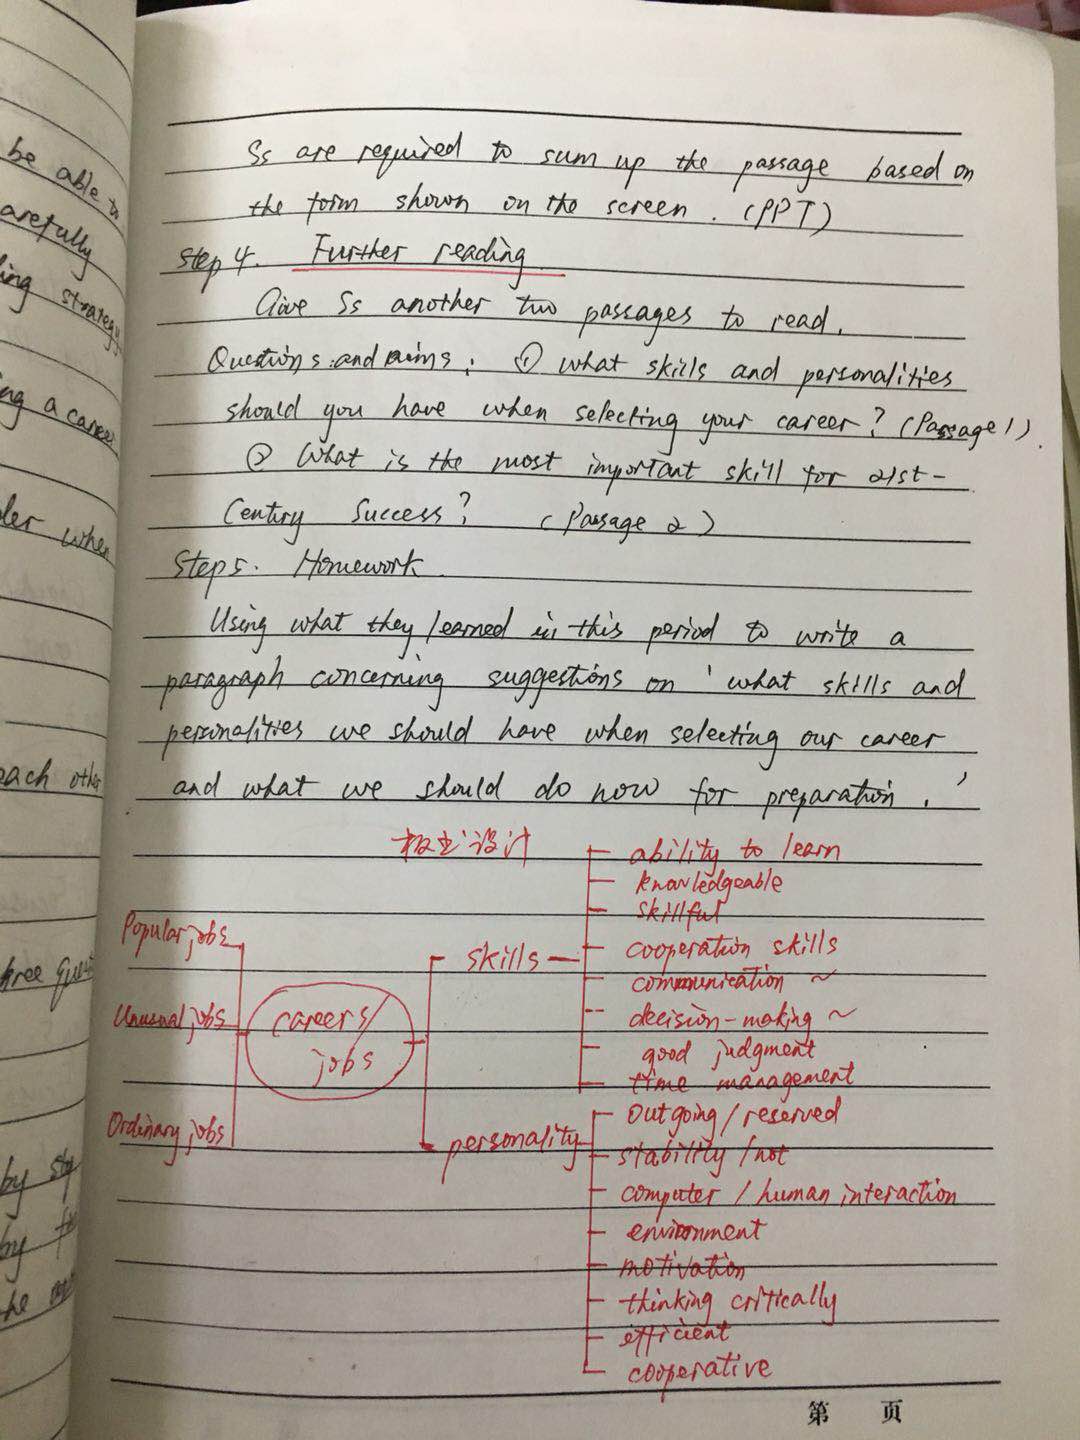 be able to
carefully
ing strategy
ing a career
when
each other
hree
by step
by
he
Ss are required to sum up the passage based on
the form shown on the screen. (PPT)
Step 4. Further reading
Give Ss another two passages to read.
Questions and aims: ① What skills and personalities
should you have when selecting your career? (Passage 1).
② What is the most important skill for 21st-
Century Success? (Passage 2)
Step 5. Homework
Using what they learned in this period to write a
paragraph concerning suggestions on 'what skills and
personalities we should have when selecting our career
and what we should do now for preparation.'
板书设计
Popular jobs
Unusual jobs
Ordinary jobs
careers/
jobs
skills
ability to learn
knowledgeable
skillful
cooperation skills
communication ~
decision-making ~
good judgment
time management
personality
outgoing / reserved
stability / not
computer / human interaction
environment
motivation
thinking critically
efficient
cooperative
第 页